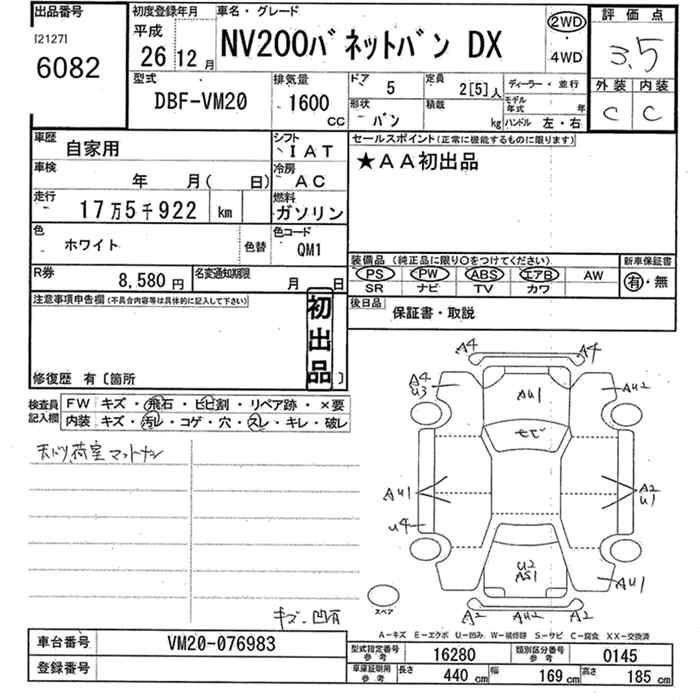 出品番号
[2127]
6082
初度登録年月
平成
26年12月
車名・グレード
NV200バネットバン DX
2WD
・
4WD
評価点
3.5
外装 内装
C C
型式
DBF-VM20
排気量
1600
CC
ドア
5
定員
2[5]人
ディーラー・並行
形状
バン
積載
kg
モデル年式 年
ハンドル 左・右
車歴
自家用
シフト
IAT
車検
年 月( 日)
冷房
AC
走行
17万5千922 km
燃料
ガソリン
色
ホワイト
色替
色コード
QM1
R券
8,580円
名変通知期限
月 日
セールスポイント(正常に機能するものに限ります)
★AA初出品
装備品(純正品に限り○をつけてください)
PS PW ABS エアB AW
SR ナビ TV カワ
新車保証書
有・無
後日品
保証書・取説
注意事項申告欄(不具合内容等は具体的に記入して下さい)
初出品
修復歴 有〔箇所 〕
検査員記入欄
FW キズ・飛石・ヒビ割・リペア跡・×要
内装 キズ・汚レ・コゲ・穴・スレ・キレ・破レ
荷室マットナシ
キズ、凹有
A4 A4
A4
U3
AU1
AU2
AU1
A2
U1
U4
U2
AS1
AU1
A2 AU2 A2
スペア
A-キズ E-エクボ U-凹み W-補修跡 S-サビ C-腐食 XX-交換済
車台番号
VM20-076983
登録番号
型式指定番号
参考
16280
類別区分番号
参考
0145
車庫証明用
参考
長さ
440 cm
幅
169 cm
高さ
185 cm